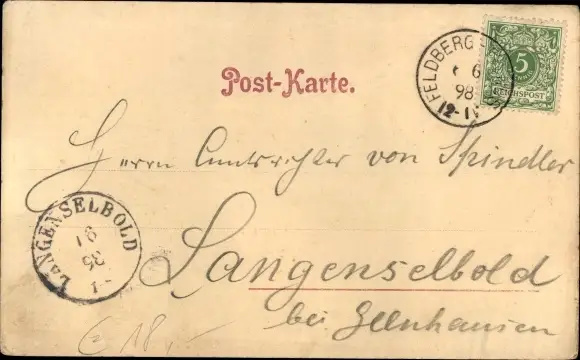 FELDBERG
6
98
12-1
5
REICHSPOST
Post-Karte.
Herrn Amtsrichter von Spindler
LANGENSELBOLD
9/1
98
Langenselbold
bei Gelnhausen
€ 18,-